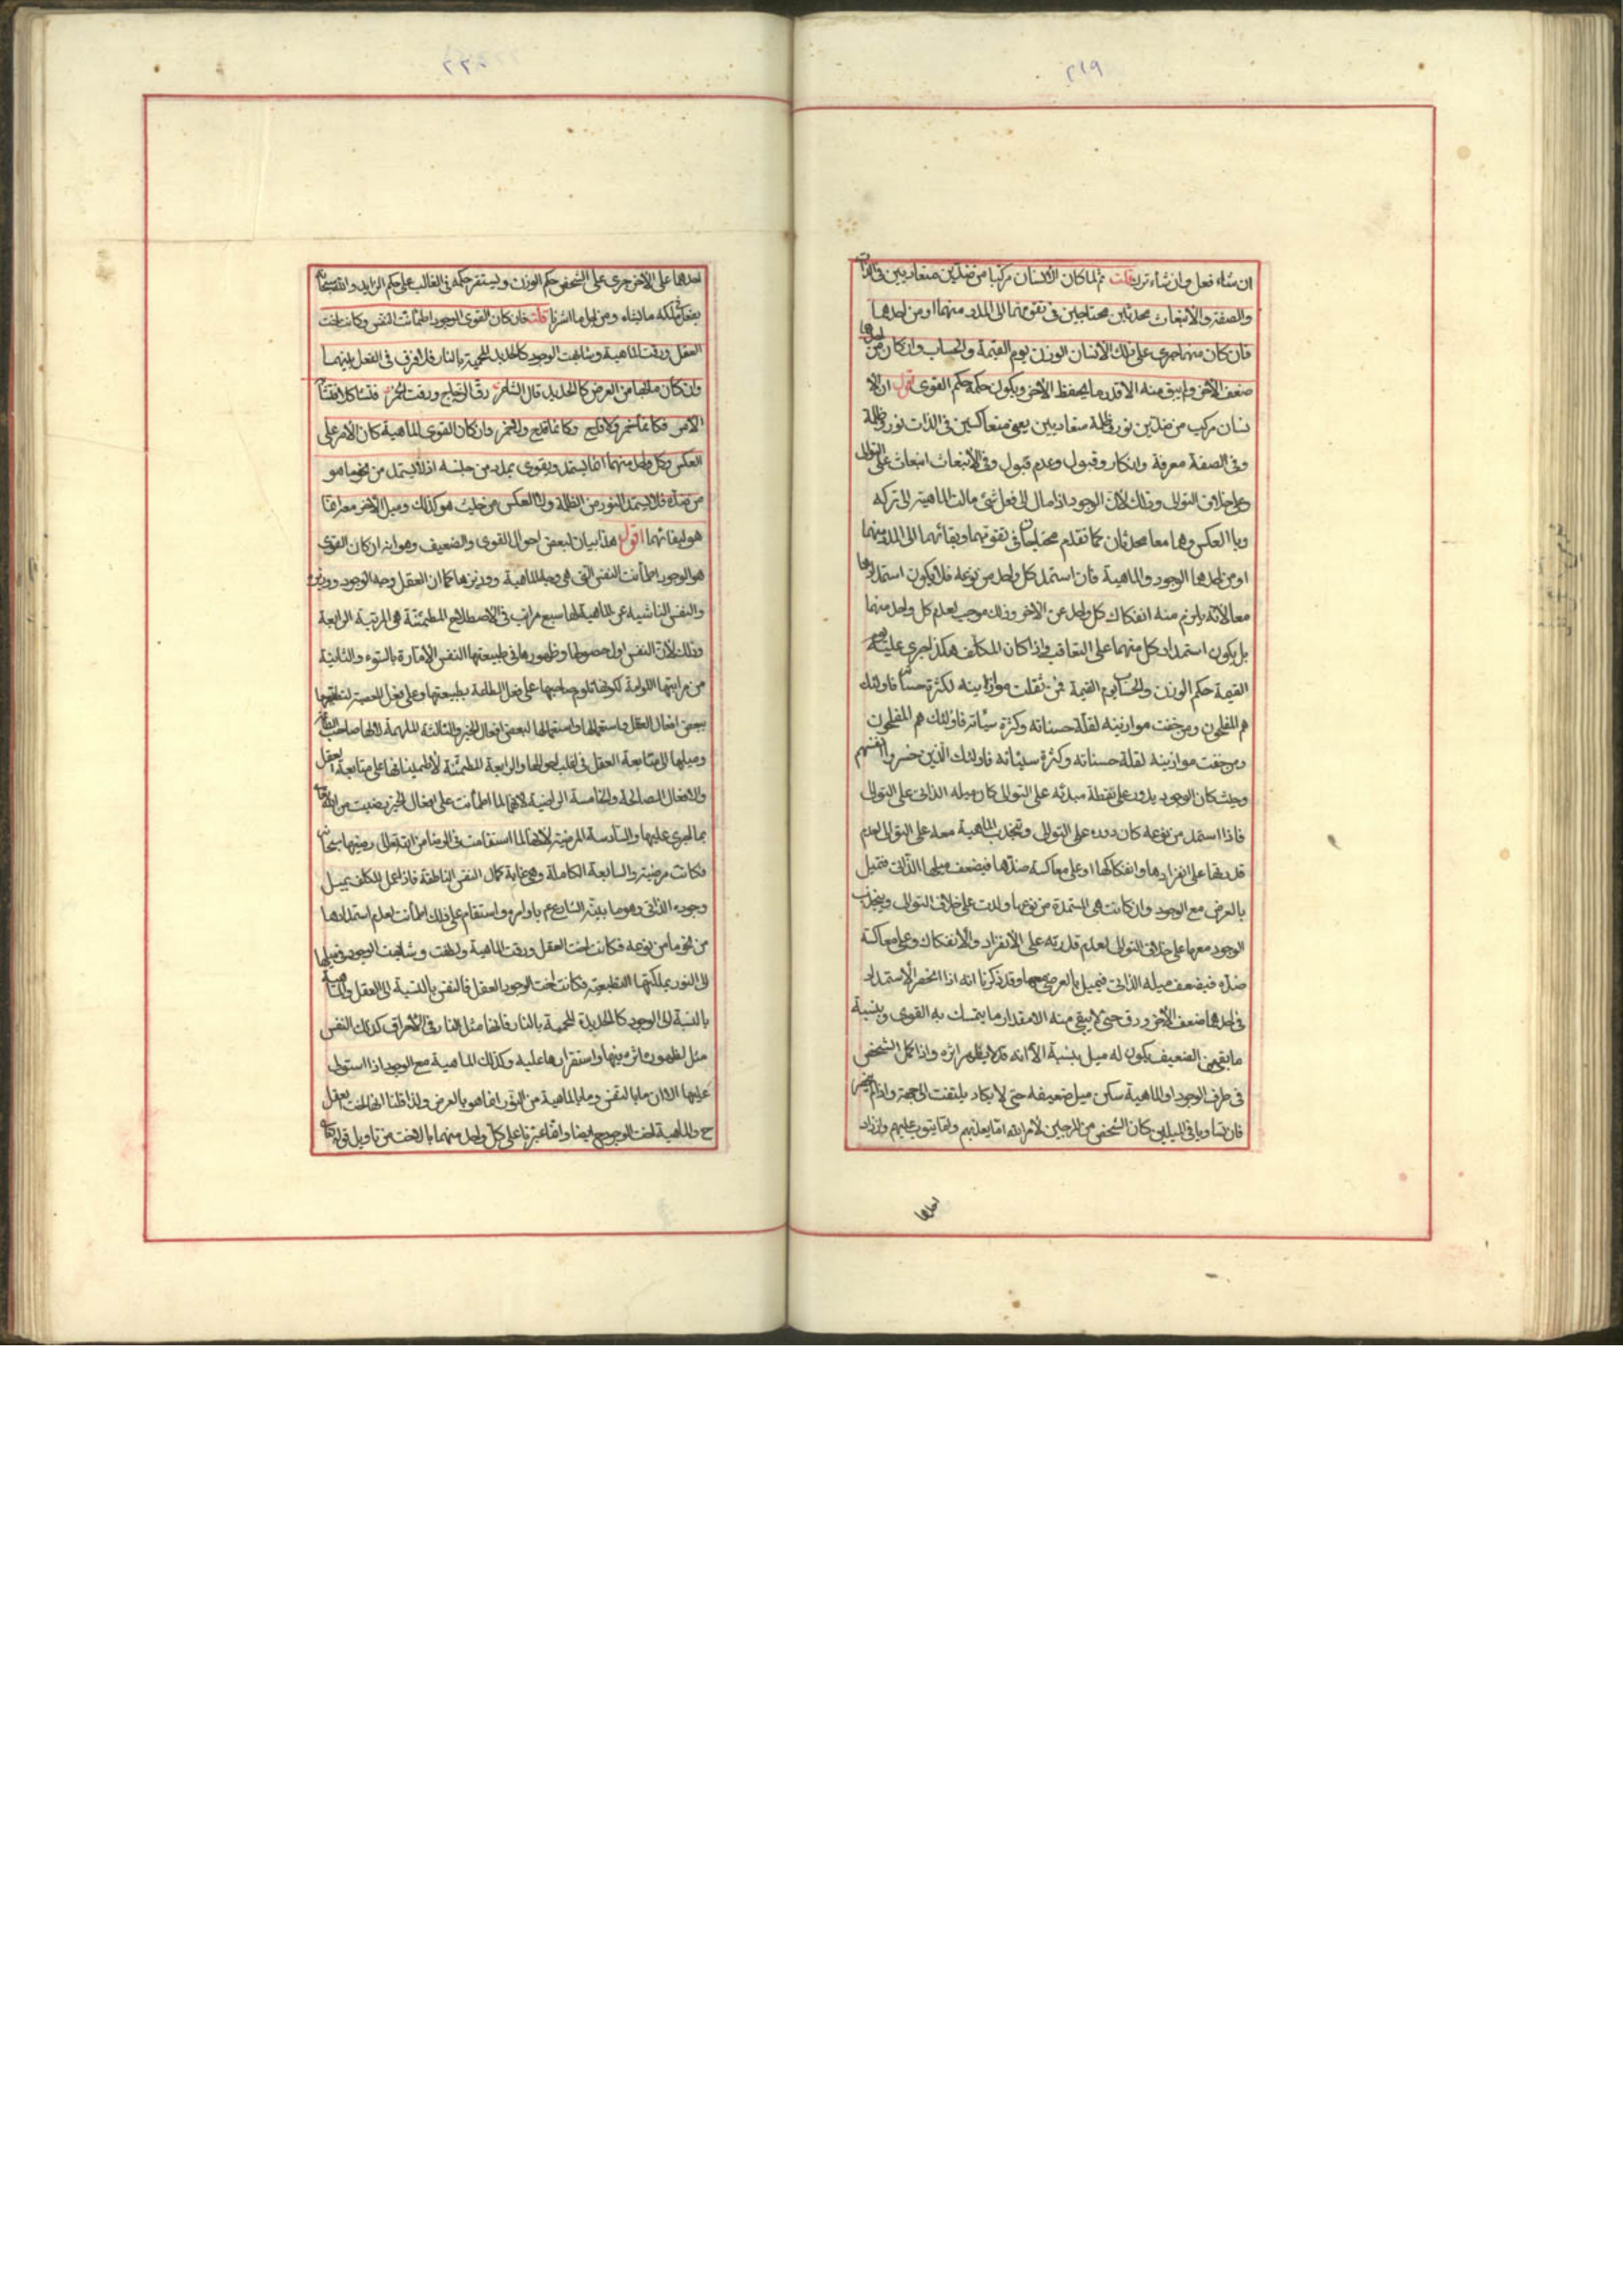 ٢١٩
ان شاء فعل وان شاء ترك قلت ثم لما كان الانسان مركبا من ضدين متعاديين في الذات
والصفة والانبعاث محدثين محتاجين في تقومهما الى المدد منهما او من احدهما
فان كان منهما جرى على ذلك الانسان الوزن يوم القيمة والحساب وان كان من احدهما
ضعف الاخر ولم يبق منه الا قدر ما يحفظ الاخر ويكون حكمه حكم القوى اقول ان الا
نسان مركب من ضدين نور وظلمة متعاديين يعنى متعاكسين في الذات نور وظلمة
وفي الصفة معرفة وانكار وقبول وعدم قبول وفي الانبعاث انبعاث على التوالى
وعلى خلاف التوالى وذلك لان الوجود اذا مال الى فعل شئ مالت الماهية الى تركه
وبالعكس وهما معا محدثان كما تقدم محتاجان في تقومهما وبقائهما الى المدد منهما
او من احدهما الوجود والماهية فان استمد كل واحد من نوعه فلا يكون استمدادهما
معا لانه يلزم منه انفكاك كل واحد عن الاخر وذلك موجب لعدم كل واحد منهما
بل يكون استمداد كل منهما على التعاقب فاذا كان المكلف هكذا جرى عليه يوم
القيمة حكم الوزن والحساب يوم القيمة فمن ثقلت موازينه لكثرة حسناته فاولئك
هم المفلحون ومن خفت موازينه لقلة حسناته وكثرة سيئاته فاولئك هم المفلحون
ومن خفت موازينه لقلة حسناته وكثرة سيئاته فاولئك الذين خسروا انفسهم
وحيث كان الوجود يدور على نقطة مبدئه على التوالى كان ميله الذاتى على التوالى
فاذا استمد من نوعه كان دوره على التوالى وتنجذب الماهية معه على التوالى لعدم
قدرتها على انفرادها وانفكاكها او على معاكسة ضدها فيضعف ميلها الذاتى فتميل
بالعرض مع الوجود وان كانت هى المستمدة من نوعها دارت على خلاف التوالى وينجذب
الوجود معها على خلاف التوالى لعدم قدرته على الانفراد والانفكاك وعلى معاكسة
ضده فيضعف ميله الذاتى فيميل بالعرض معها وقد ذكرنا انه اذا انحصر الاستمداد
في احدهما ضعف الاخر ودق حتى لا يبقى منه الا مقدار ما يتمسك به القوى وبنسبة
ما بقى من الضعيف يكون له ميل بنسبة الا انه قد لا يظهر اثره واذا كمل الشخص
في طرف الوجود او الماهية سكن ميل ضعيفه حتى لا يكاد يلتفت الى جهته واذا لم
فان تساويا في الميلين كان الشخص من المرجين لامر الله اما يعذبهم واما يتوب عليهم وان زاد
احدهما
احدهما على الاخر جرى على الشخص حكم الوزن ويستقر حكمه في الغالب على حكم الزايد والله سبحانه
يفعل في ملكه ما يشاء ومن اجل ما اشرنا قلت فان كان القوى الوجود اطمأنت النفس وكانت اخت
العقل ورقت الماهية وشابهت الوجود كالحديد المحمية بالنار فلا فرق في الفعل بينهما
وان كان ما لها من العرض كالحديد قال الشاعر رق الزجاج ورقت الخمر فتشاكلا فتشابه
الامر فكانما خمر ولا قدح وكانما قدح ولا خمر وان كان القوى الماهية كان الامر على
العكس وكل واحد منهما انما يستمد ويقوى بمدد من جنسه اذ لا يستمد من نحو ما هو
من ضده فلا يستمد النور من الظلمة ولا العكس من حيث هو كذلك وميل الاخر معه انما
هو لبقائهما اقول هذا بيان لبعض احوال القوى والضعيف وهو انه ان كان القوى
هو الوجود اطمأنت النفس التى هى وجه الماهية ووزيرها كما ان العقل وجه الوجود ووزيره
والنفس الناشية عن الماهية لها سبع مراتب في الاصطلاح المطمئنة هى المرتبة الرابعة
وذلك لان النفس اول حصولها وظهورها في طبيعتها النفس الامارة بالسوء والثانية
من مراتبها اللوامة لكونها تلوم صاحبها على فعل الطاعة بطبيعتها وعلى فعل المعصية
ببعض افعال العقل واستعمالها لبعض افعال الخير والثالثة الملهمة لانها صاحب
وميلها الى متابعة العقل في اغلب احوالها والرابعة المطمئنة لاطمينانها على متابعة العقل
والافعال الصالحة والخامسة الراضية لانها لما اطمأنت على افعال الخير رضيت من الله
بما يجرى عليها والسادسة المرضية لانها لما استقامت في الرضا من الله تعالى رضيها سبحانه
فكانت مرضية والسابعة الكاملة وهى غاية كمال النفس الناطقة فاذا عمل المكلف بميل
وجوده الذاتى وهو ما بينه الشارع ع باوامره واستقام على ذلك اطمأنت لعدم استمدادها
من نحو ما من نوعه فكانت اخت العقل ورقت الماهية ولطفت وشابهت الوجود في ميلها
الى النور بملكتها التطبعية فكانت اخت الوجود العقل فالنفس بالنسبة الى العقل والماهية
بالنسبة الى الوجود كالحديدة المحمية بالنار فانها مثل النار في الاحراق كذلك النفس
مثل لظهور ماثره فيها واستقرارها عليه وكذلك الماهية مع الوجود اذا استولى
عليها الا ان ما بالنفس وما بالماهية من النور انما هو بالعرض ولذا قلنا انها اخت العقل
ح والماهية اخت الوجود ح ايضا وانما عبرنا على كل واحد منهما بالاخت من تاويل قوله تعالى